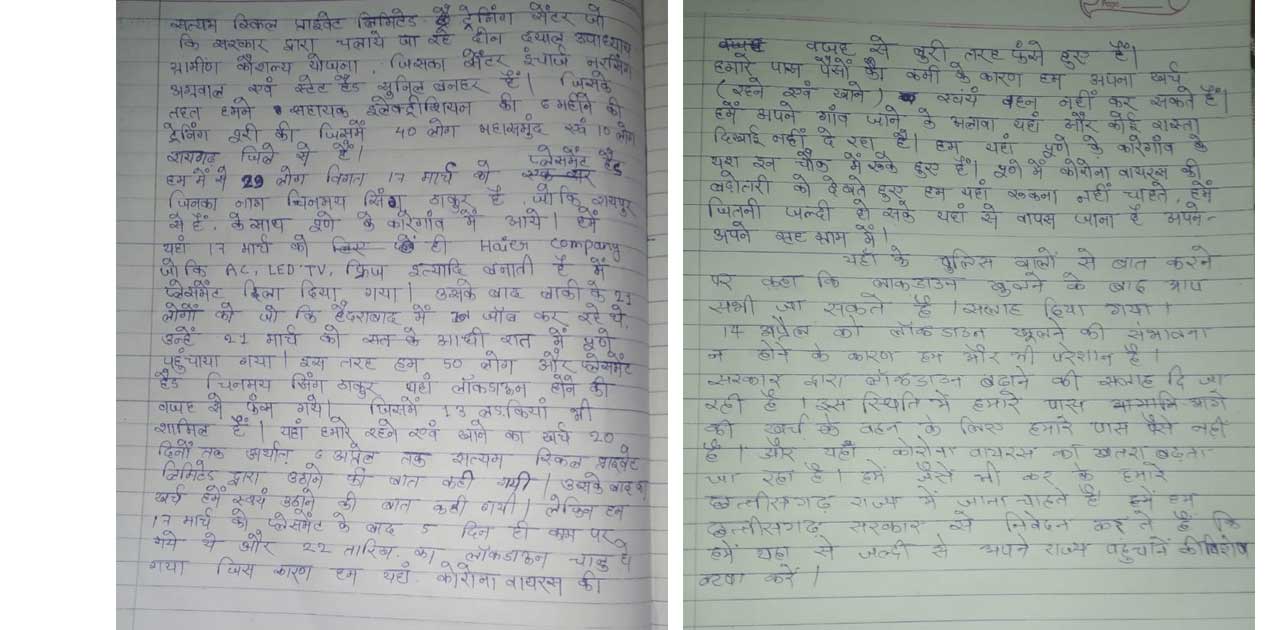 सत्यम स्किल प्राइवेट लिमिटेड के ट्रेनिंग सेंटर जो
कि सरकार द्वारा चलाये जा रहे दीन दयाल उपाध्याय
ग्रामीण कौशल्य योजना, जिसका सेंटर इंचार्ज नरसिंग
अग्रवाल एवं स्टेट हैड सुनिल बनहर हैं। जिसके
तहत हमने सहायक इलेक्ट्रीशियन की 6 महीने की
ट्रेनिंग पूरी की जिसमें 40 लोग महासमुंद एवं 10 लोग
रायगढ़ जिले से हैं।
हम में से 29 लोग विगत 17 मार्च को प्लेसमेंट हैड
जिनका नाम चिनमय सिंग ठाकुर है जो कि रायपुर
से हैं. के साथ पूणे के कारेगांव में आये। हमें
यहां 17 मार्च को ही Haier company
जो कि AC, LED TV, फ्रिज इत्यादि बनाती है में
प्लेसमेंट दिला दिया गया। उसके बाद बाकी के 21
लोगों को जो कि हैदराबाद में जॉब कर रहे थे,
उन्हें 21 मार्च को रात के आधी रात में पूणे
पहुंचाया गया। इस तरह हम 50 लोग और प्लेसमेंट
हैड चिनमय सिंग ठाकुर यहां लॉकडाऊन होने की
वजह से फंस गये। जिसमें 13 लडकियां भी
शामिल हैं। यहां हमारे रहने एवं खाने का खर्च 20
दिनों तक अर्थात् 6 अप्रेल तक सत्यम स्किल प्राइवेट
लिमिटेड द्वारा उठाने की बात कही गयी। उसके बाद
खर्च हमें स्वयं उठाने की बात कही गयी। लेकिन हम
17 मार्च को प्लेसमेंट के बाद 5 दिन ही काम पर
गये थे और 22 तारिख का लॉकडाऊन चालु
गया जिस कारण हम यहां कोरोना वायरस की
वजह से बुरी तरह फंसे हुए हैं।
हमारे पास पैसों की कमी के कारण हम अपना खर्च
(रहने एवं खाने) स्वंय वहन नहीं कर सकते हैं।
हमें अपने गांव जाने के अलावा यहां और कोई रास्ता
दिखाई नहीं दे रहा है। हम यहां पूणे के कारेगांव के
यश इन चौक में रूके हुए हैं। पूणे में कोरोना वायरस की
बढोतरी को देखते हुए हम यहां रूकना नहीं चाहते, हमें
जितनी जल्दी हो सके यहां से वापस जाना है अपने-
अपने गृह ग्राम में।
यहां के पुलिस वालों से बात करने
पर कहा कि लाकडाउन खुलने के बाद आप
सभी जा सकते है। सलाह दिया गया।
14 अप्रैल को लॉकडाउन खुलने की संभावना
न होने के कारण हम और भी परेशान है।
सरकार द्वारा लॉकडाउन बढाने की सलाह दि जा
रही है। इस स्थिति में हमारे पास आगे
की खर्च के वहन के लिए हमारे पास पैसे नही
है। और यहाँ कोरोना वायरस का खतरा बढ़ता
जा रहा है। हमे जैसे भी कर के हमारे
छत्तीसगढ़ राज्य में जाना चाहते है हमें हम
छत्तीसगढ़ सरकार से निवेदन करते हैं कि
हमें यहा से जल्दी से अपने राज्य पहुचाने की विशेष
कृपा करें।